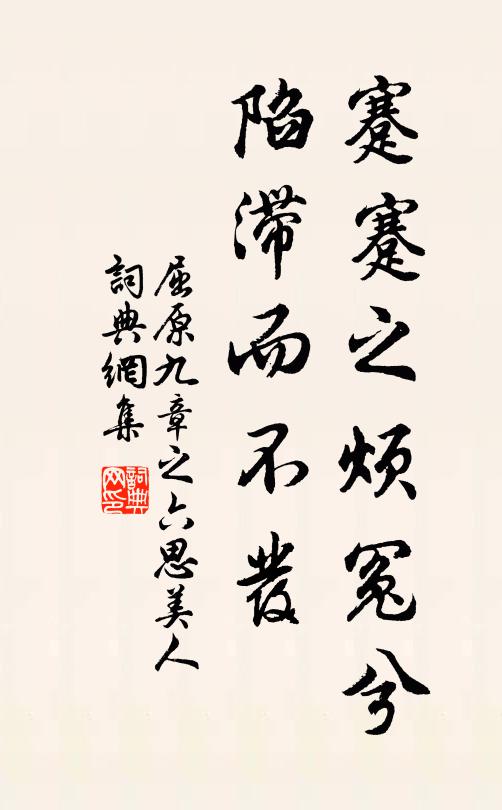 蹇蹇之煩冤兮
陷滯而不發
屈原九章之六思美人
詞典網集
詞典
网印